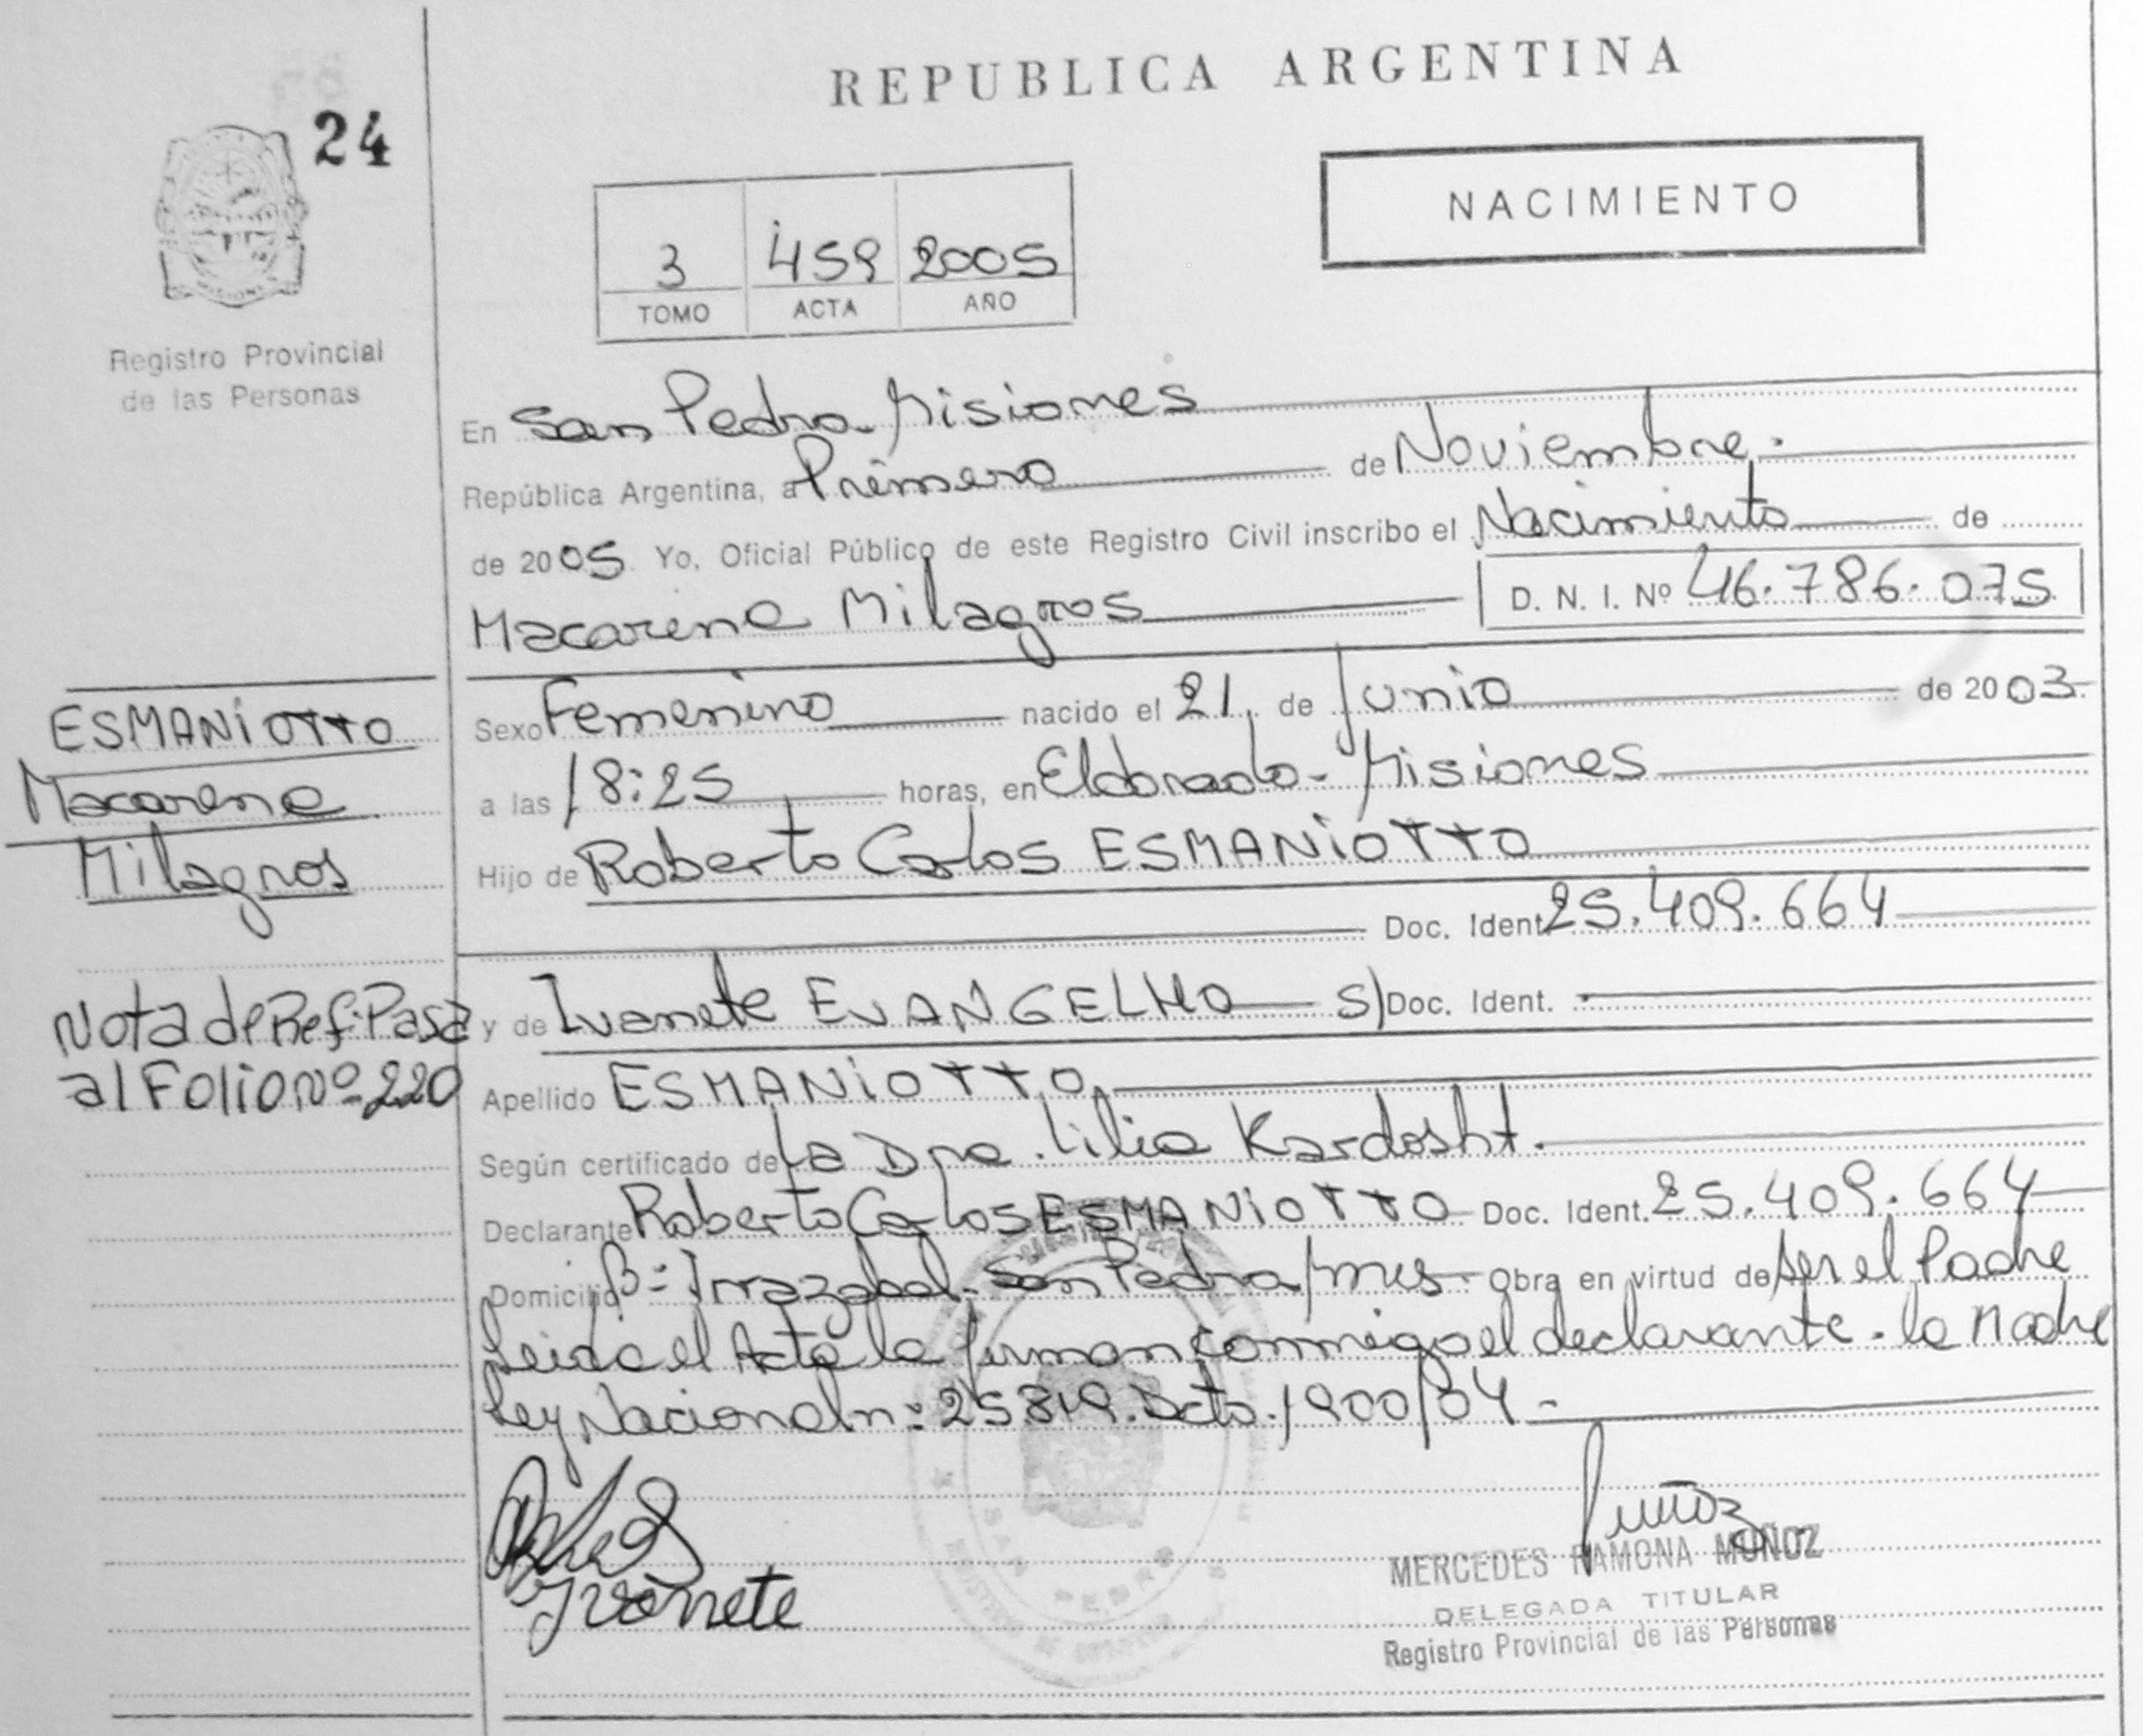 REPUBLICA ARGENTINA
24
NACIMIENTO
3 459 2005
TOMO ACTA AÑO
Registro Provincial
de las Personas
En San Pedro Misiones
República Argentina, a Primero de Noviembre.
de 2005 Yo, Oficial Público de este Registro Civil inscribo el Nacimiento de
Macarena Milagros D. N. I. Nº 46.786.075
Sexo Femenino nacido el 21 de Junio de 2003.
a las 18:25 horas, en Eldorado - Misiones
Hijo de Roberto Carlos ESMANiOTTO
Doc. Ident. 25.409.664
y de Ivanete EVANGELHO S/Doc. Ident.
Apellido ESMANiOTTO.
Según certificado de La Dra. Lilia Kardosht.
Declarante Roberto Carlos ESMANiOTTO Doc. Ident. 25.409.664
Domicilio Bº Irrazabal. San Pedro/mns. Obra en virtud de ser el Padre
Leida el Acta la firman conmigo el declarante - la Madre
Ley Nacional nº 25819. Dcto. 1900/04 -
ESMANiOTTO
Macarena
Milagros
Nota de Ref: Pasa
al Folio Nº 220
Ivanete
Muñoz
MERCEDES RAMONA MUÑOZ
DELEGADA TITULAR
Registro Provincial de las Personas
SAN PEDRO